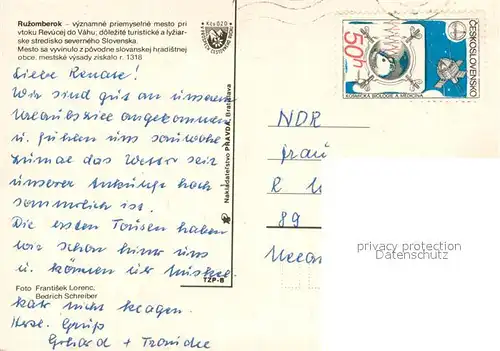 Ružomberok - významné priemyselné mesto pri
vtoku Revúcej do Váhu, dôležité turistické a lyžiar-
ske stredisko severného Slovenska.
Mesto sa vyvinulo z pôvodne slovanskej hradištnej
obce, mestské výsady získalo r. 1318
Liebe Renate!
Wir sind gut an unserem
Urlaubsziel angekommen
u. fühlen uns sauwohl
zumal das Wetter seit
unserer Ankunft hoch
sommerlich ist.
Die ersten Touren haben
wir schon hinter uns
u. können über Muskel-
kater nicht klagen.
Herzl. Grüße
Gerhard +
Foto František Lorenc,
Bedrich Schreiber
Nakladateľstvo PRAVDA, Bratislava
TZP-B
Kčs 0,20
50h
ČESKOSLOVENSKO
KOSMICKÁ BIOLOGIE A MEDICÍNA
NDR
Frau
R
89
privacy protection
Veroscope.com